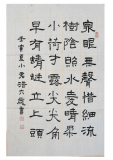 泉眼無聲惜細流
樹陰照水愛晴柔
小荷才露尖尖角
早有蜻蜓立上頭
夏小 書